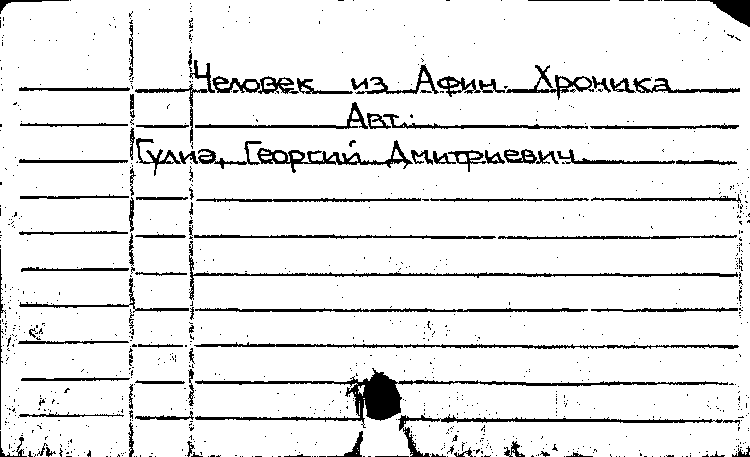 Человек из Афин. Хроника
Авт.:
Гулиа, Георгий Дмитриевич.